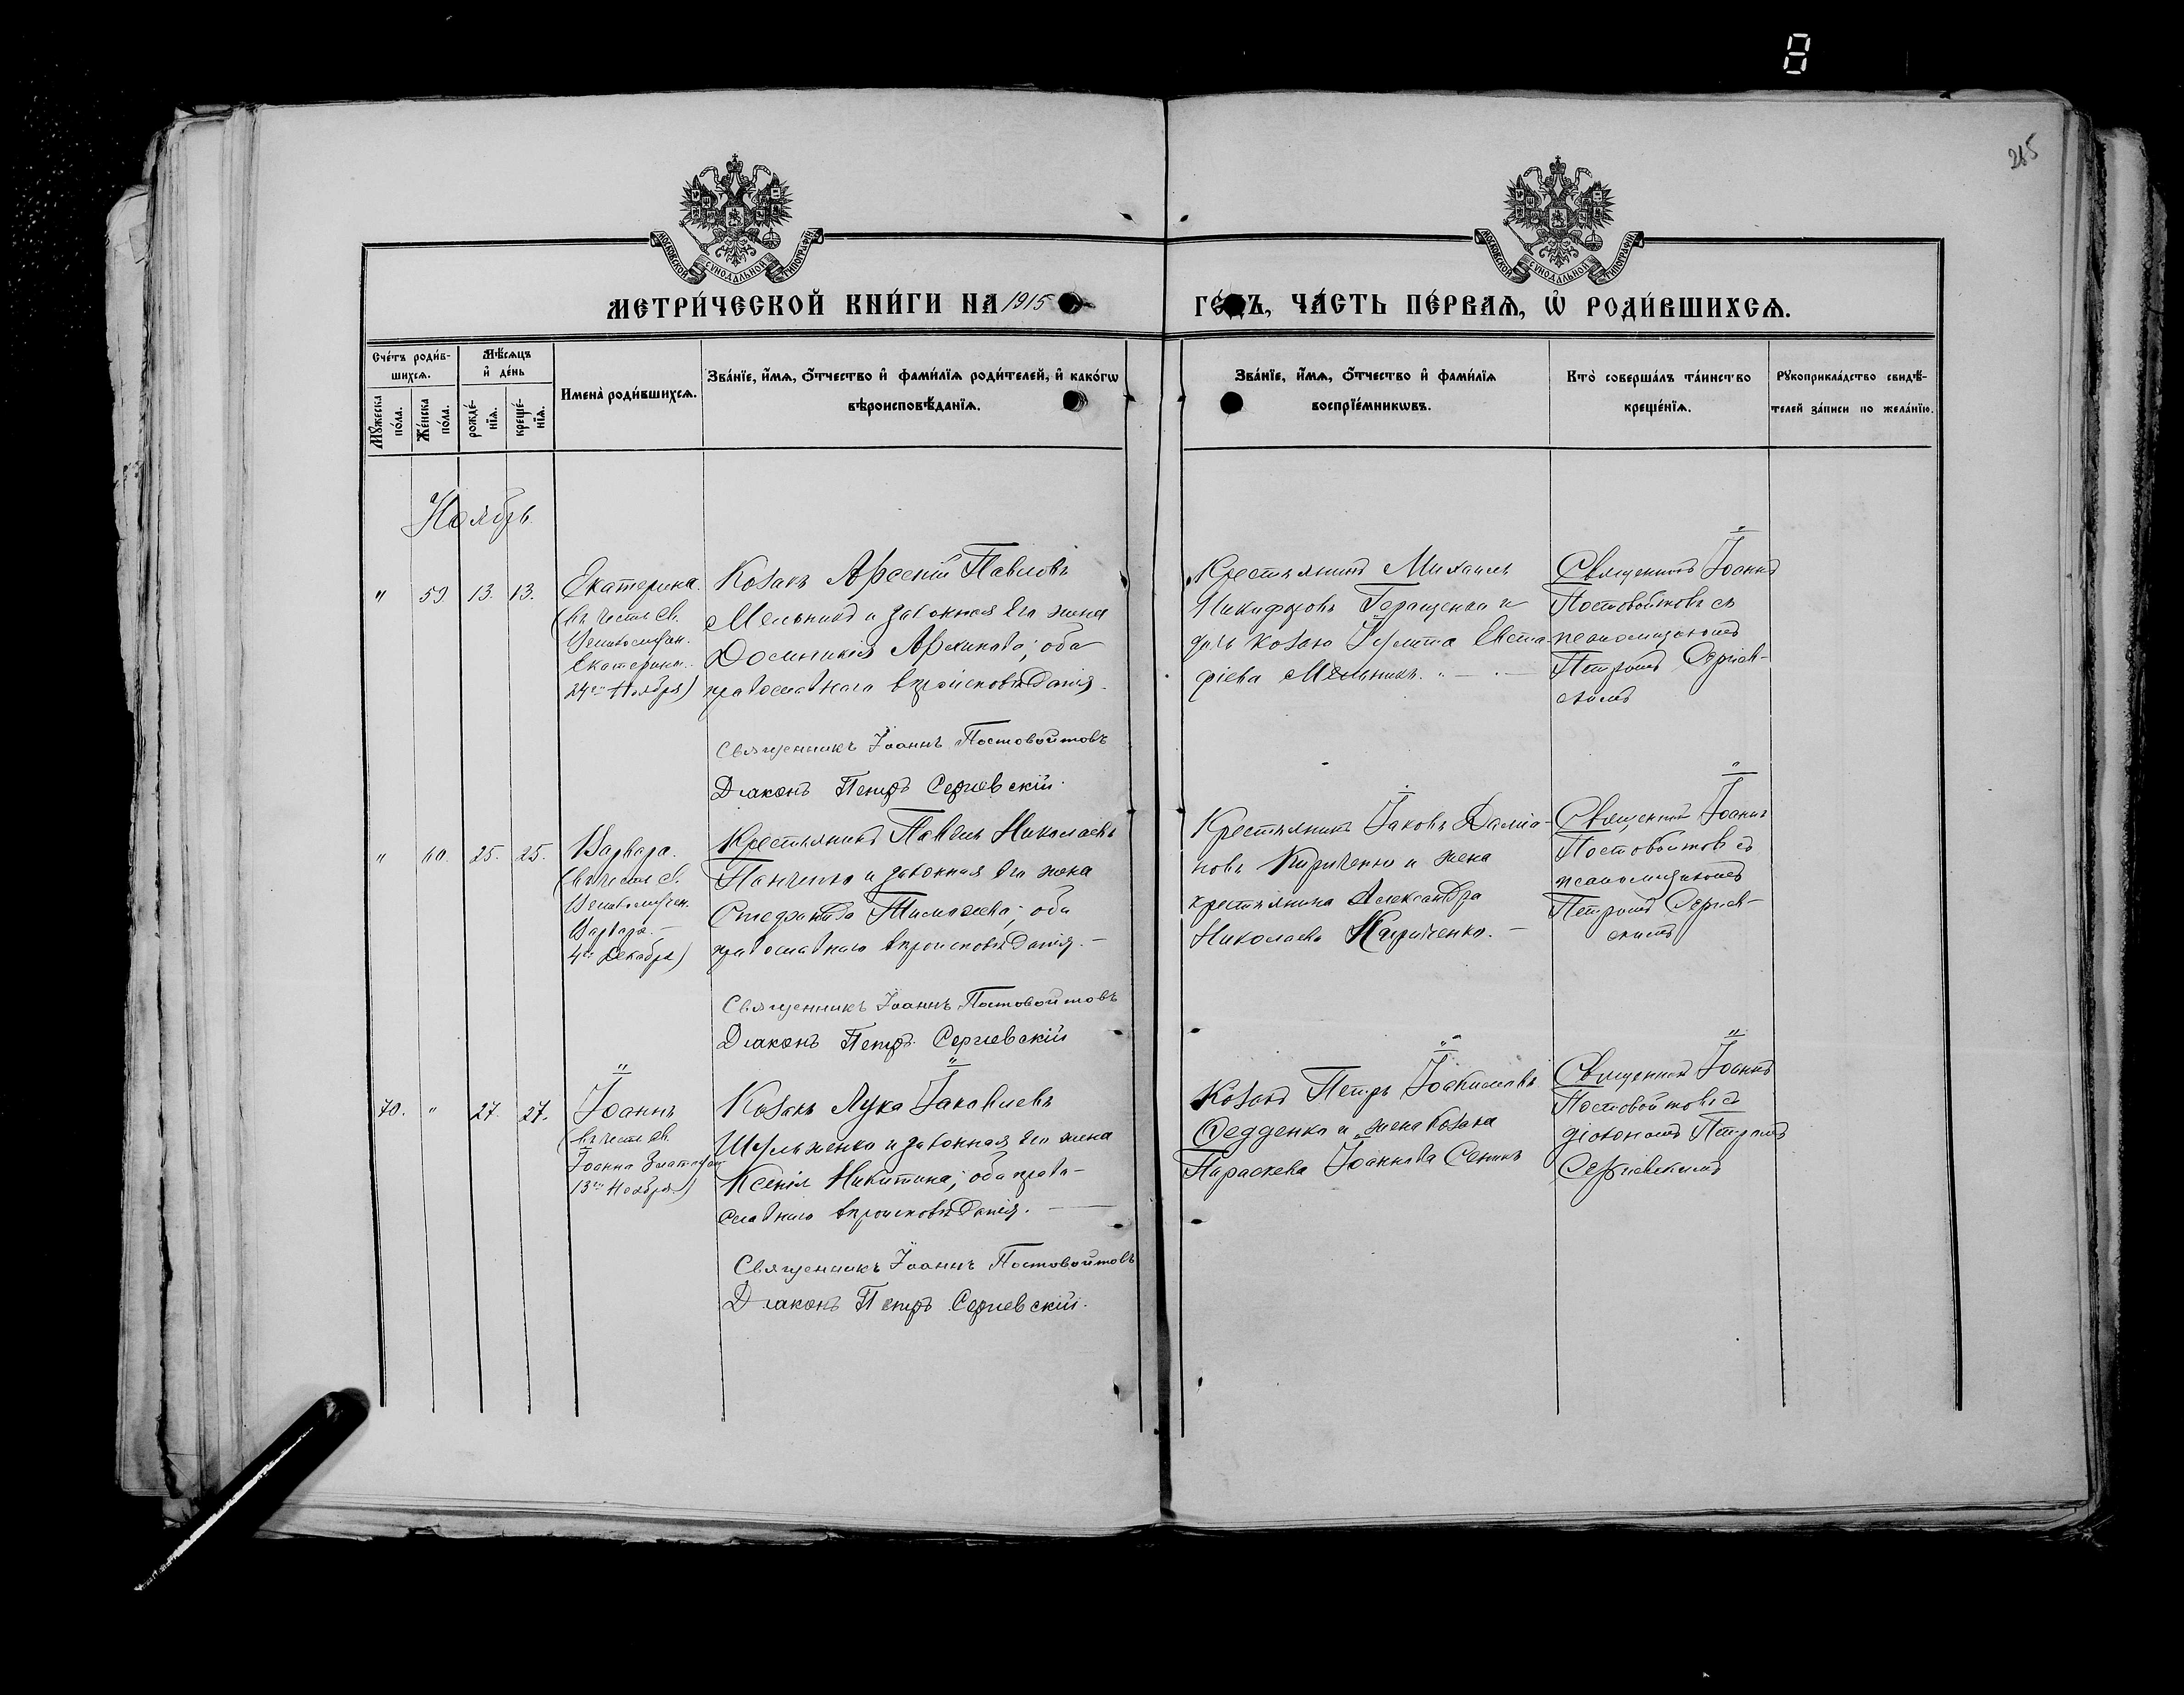 8
265
МОСКОВСКОЙ СУНОДАЛЬНОЙ ТИПОГРАФІИ
МОСКОВСКОЙ СУНОДАЛЬНОЙ ТИПОГРАФІИ
МЕТРИ́ЧЕСКОЙ КНИ́ГИ НА 1915
ГО́ДЪ, ЧА́СТЬ ПЕ́РВАѦ, Ѡ҆ РОДИ́ВШИХСѦ.
Сче́тъ роди́в-
шихсѧ.
Мꙋ́жеска по́ла.
Же́нска по́ла.
Мѣ́сѧцъ
и҆ де́нь
рожде́-нїѧ.
креще́-нїѧ.
Имена̀ роди́вшихсѧ.
Зва́нїе, и҆́мѧ, ѻ҆́тчество и҆ фами́лїѧ роди́телей, и҆ како́гѡ
вѣроисповѣ́данїѧ.
Зва́нїе, и҆́мѧ, ѻ҆́тчество и҆ фами́лїѧ
воспрїе́мникѡвъ.
Кто̀ соверша́лъ та́инство
креще́нїѧ.
Рꙋкоприкла́дство свидѣ́-
телей за́писи по жела́нїю.
Ноябрь
" 59 13. 13.
Екатерина
(въ честь св.
Великомучен.
Екатерины
24го Ноября)
Козакъ Арсеній Павловъ
Мельникъ и законная его жена
Домникія Архипова; оба
православнаго вѣроисповѣданія.
Священникъ Іоаннъ Постовойтовъ
Діаконъ Петръ Сергіевскій.
Крестьянинъ Михаилъ
Никифоровъ Геращенко и
дочь козака Іулита Евста-
фіева Мельникъ.
Священникъ Іоаннъ
Постовойтовъ съ
псаломщикомъ
Петромъ Сергіев-
скимъ
" 60. 25. 25.
Варвара.
(въ честь св.
Великомучен.
Варвары.
4го Декабря)
Крестьянинъ Павелъ Николаевъ
Панченко и законная его жена
Стефанида Тимоѳеева; оба
православнаго вѣроисповѣданія.
Священникъ Іоаннъ Постовойтовъ
Діаконъ Петръ Сергіевскій
Крестьянинъ Іаковъ Даміа-
новъ Кириченко и жена
крестьянина Александра
Николаева Кириченко.
Священникъ Іоаннъ
Постовойтовъ съ
псаломщикомъ
Петромъ Сергіев-
скимъ
70. " 27. 27.
Іоаннъ
(въ честь св.
Іоанна Златоуст
13го Ноября)
Козакъ Лука Іаковлевъ
Шульженко и законная его жена
Ксенія Никитина; оба право-
славнаго вѣроисповѣданія.
Священникъ Іоаннъ Постовойтовъ
Діаконъ Петръ Сергіевскій.
Козакъ Петръ Іоакимовъ
Ѳедденко и жена козака
Параскева Іоаннова Сеникъ
Священникъ Іоаннъ
Постовойтовъ съ
діакономъ Петромъ
Сергіевскимъ